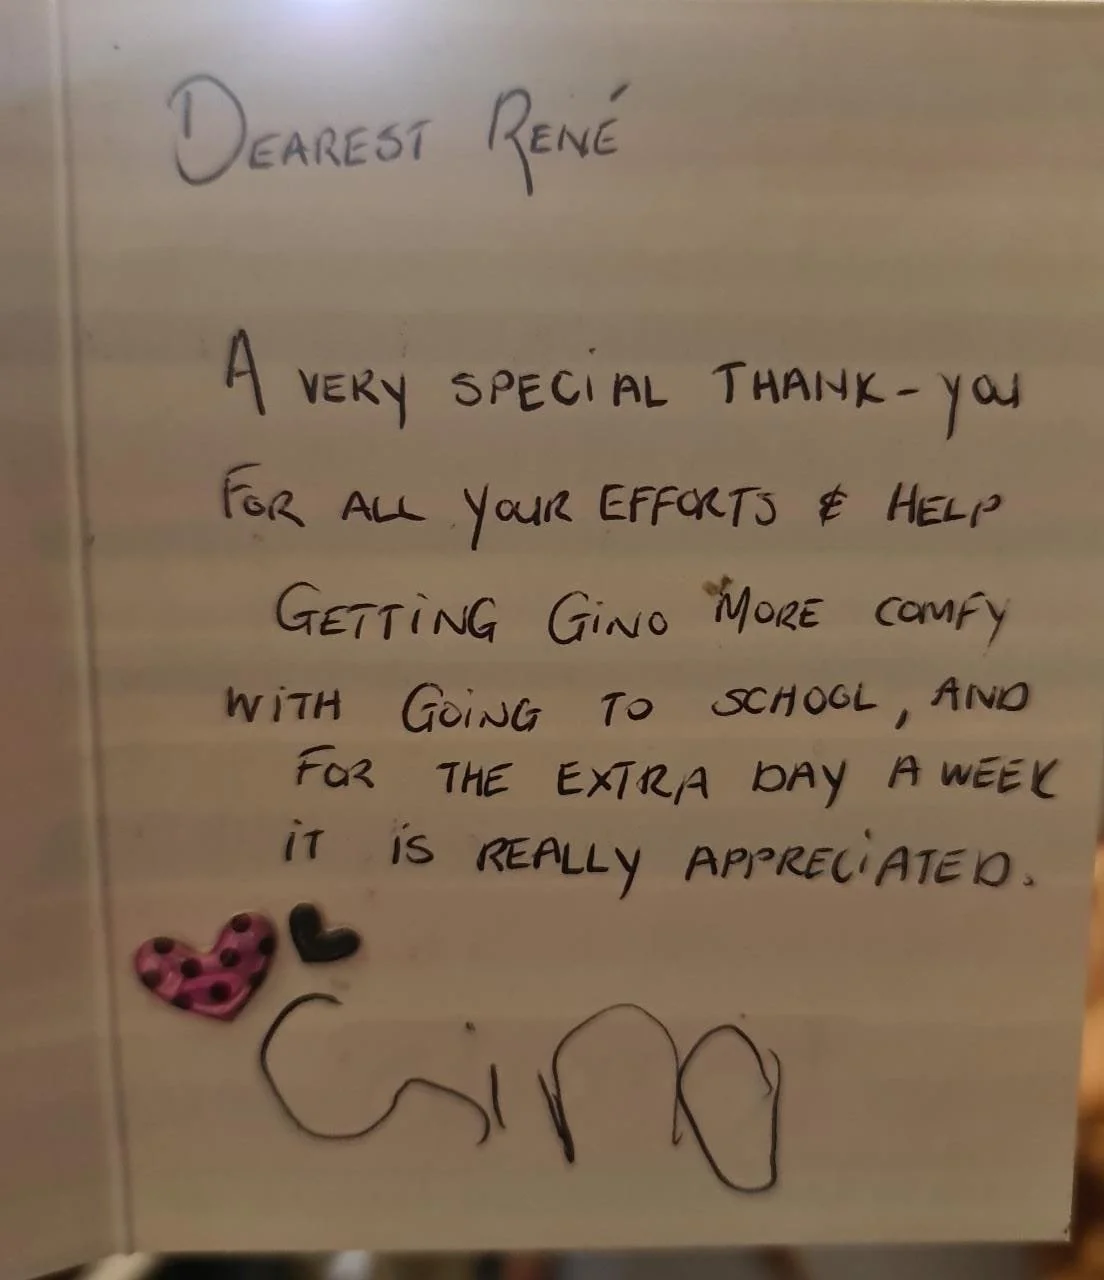 DEAREST RENÉ
A VERY SPECIAL THANK-YOU
FOR ALL YOUR EFFORTS & HELP
GETTING GINO MORE COMFY
WITH GOING TO SCHOOL, AND
FOR THE EXTRA DAY A WEEK
IT IS REALLY APPRECIATED.
Gino